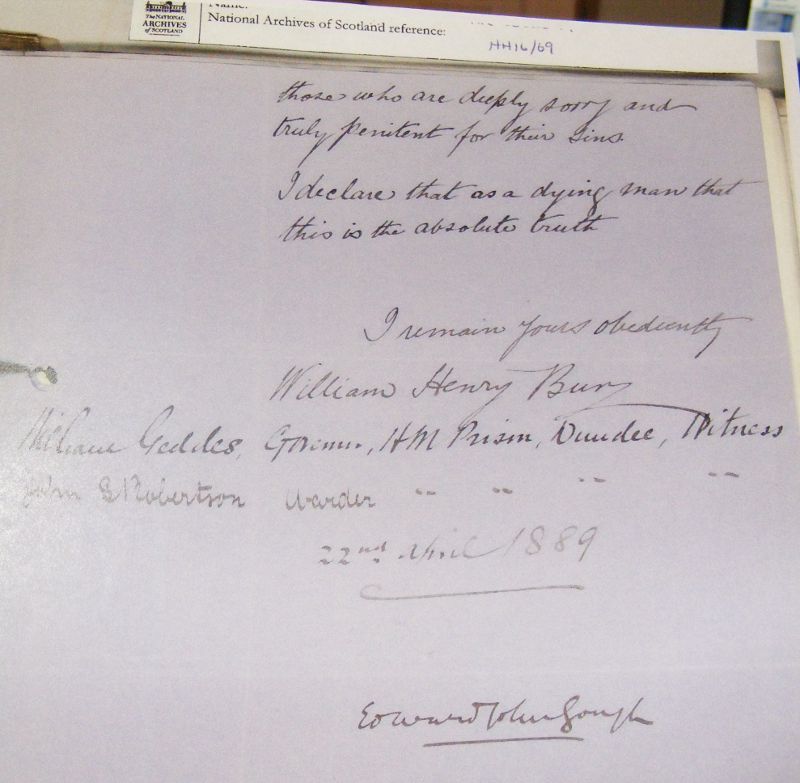 The NATIONAL
ARCHIVES
of SCOTLAND
Name:
National Archives of Scotland reference:
HH16/69
those who are deeply sorry and
truly penitent for their sins
I declare that as a dying man that
this is the absolute truth
I remain yours obediently
William Henry Bury
William Geddes, Governor, HM Prison, Dundee, Witness
John S Robertson Warder " " " "
22nd April 1889
Edward John Gough